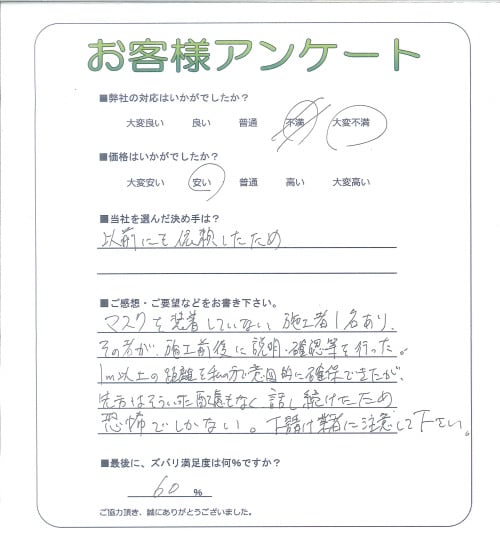 お客様アンケート
■弊社の対応はいかがでしたか？
大変良い 良い 普通 不満 大変不満
■価格はいかがでしたか？
大変安い 安い 普通 高い 大変高い
■当社を選んだ決め手は？
以前にも依頼したため
■ご感想・ご要望などをお書き下さい。
マスクを装着していない施工者1名あり、
その者が、施工前後に説明・確認等を行った。
1m以上の距離を私の方で意図的に確保できたが、
先方はそういった配慮もなく話し続けたため
恐怖でしかない。下請け業者に注意して下さい。
■最後に、ズバリ満足度は何％ですか？
60 %
ご協力頂き、誠にありがとうございました。